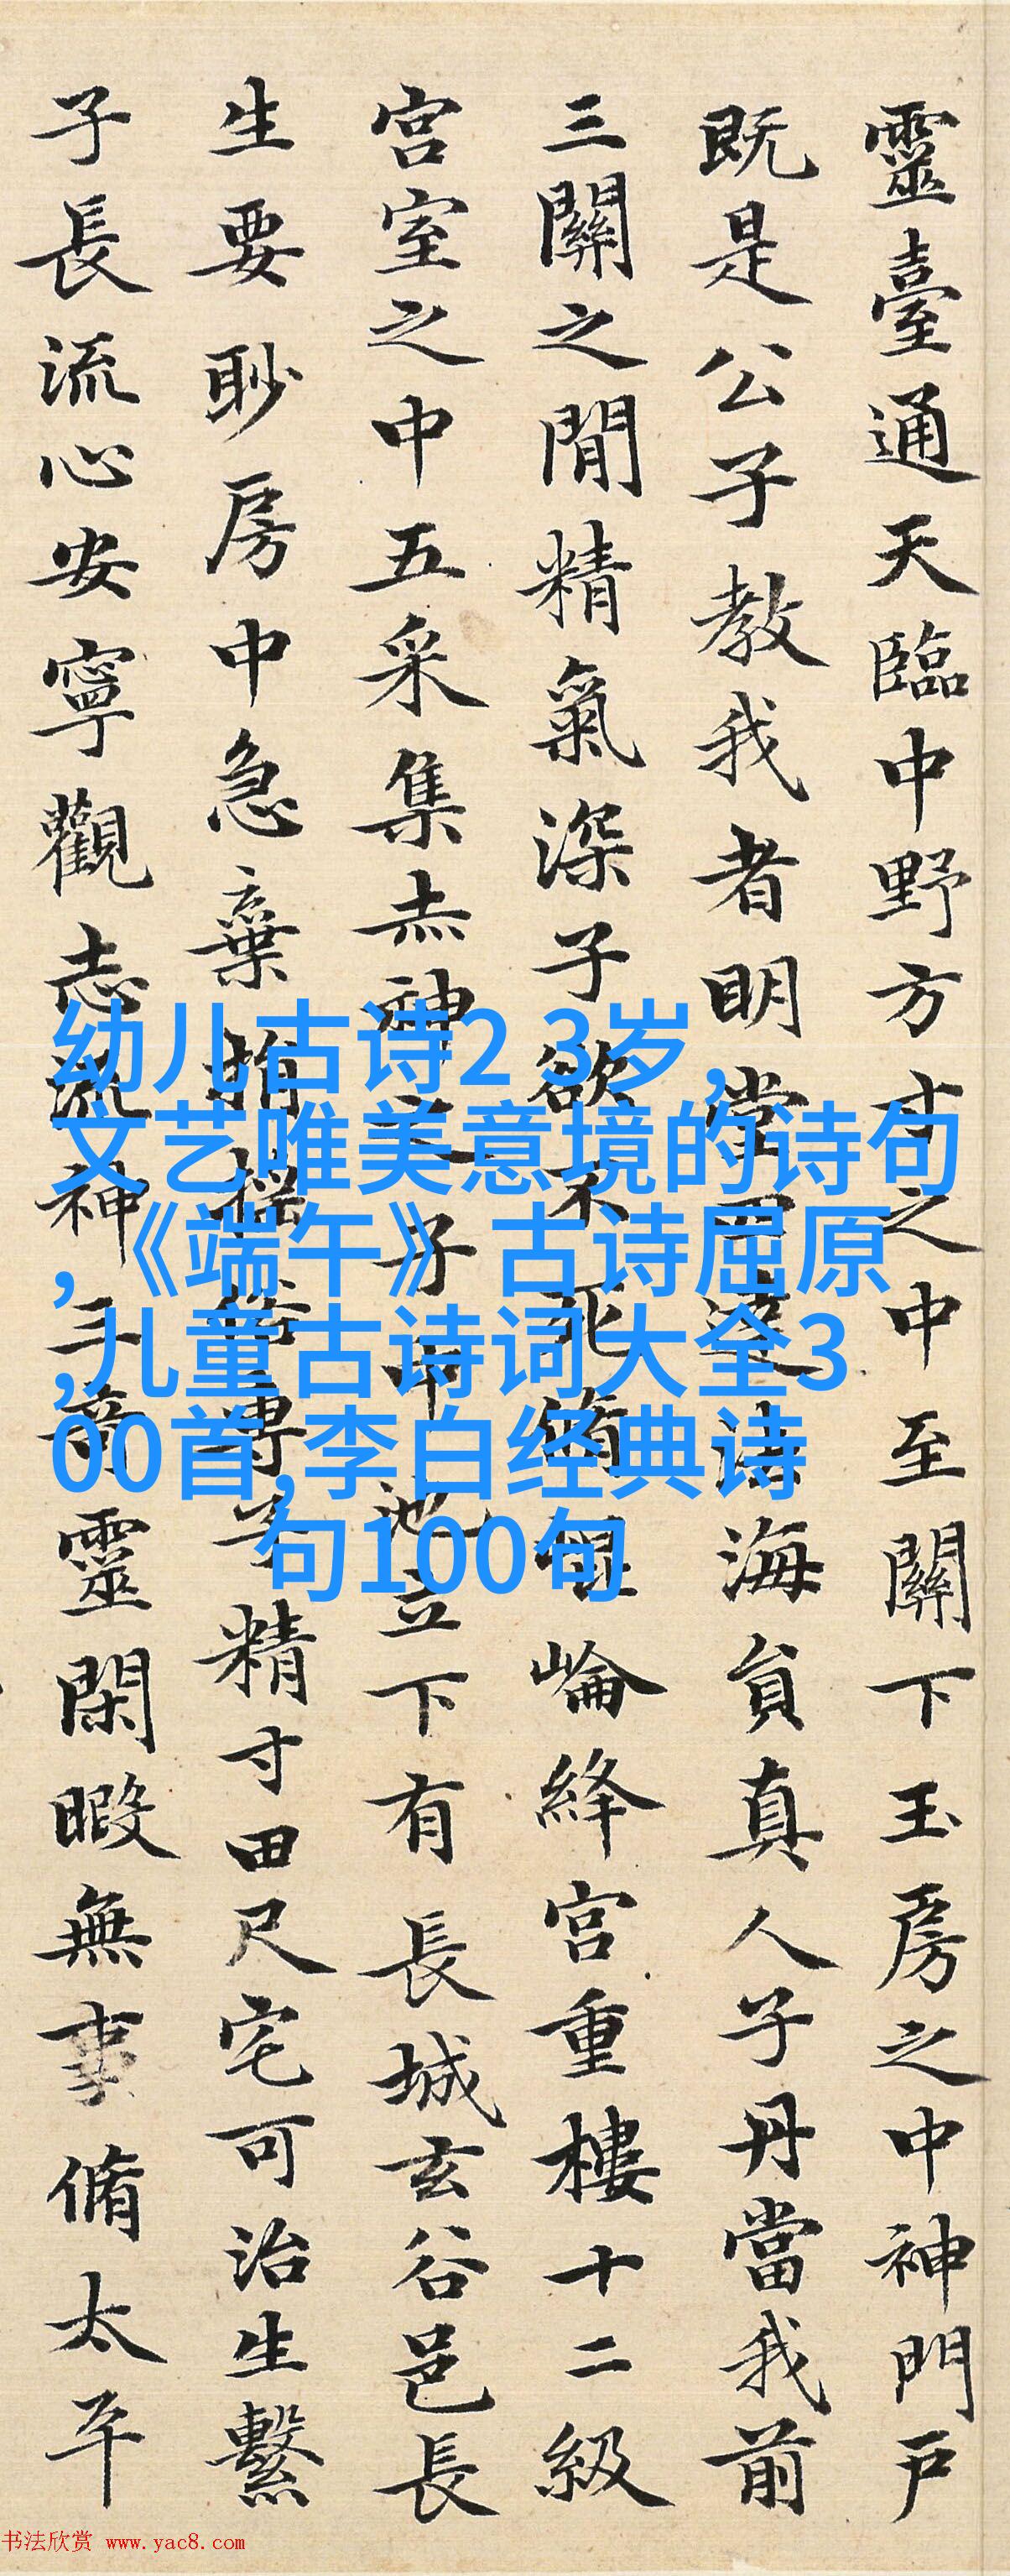 靈臺通天臨中野方寸之中至關下玉房之中神門户
既是公子教我者明堂四達法海負真人子丹當我前
三關之間精氣深子欲不死脩崐崘絳宫重樓十二級
宫室之中五采集赤神之子中池立下有長城玄谷邑長
生要眇房中急棄捐搖俗專子精寸田尺宅可治生繫
子長流心安寧觀志流神三奇靈閑暇無事脩太平
幼儿古诗2 3岁,
文艺唯美意境的诗句
,《端午》古诗屈原
,儿童古诗词大全3
00首,李白经典诗
句100句
书法欣赏 www.yac8.com